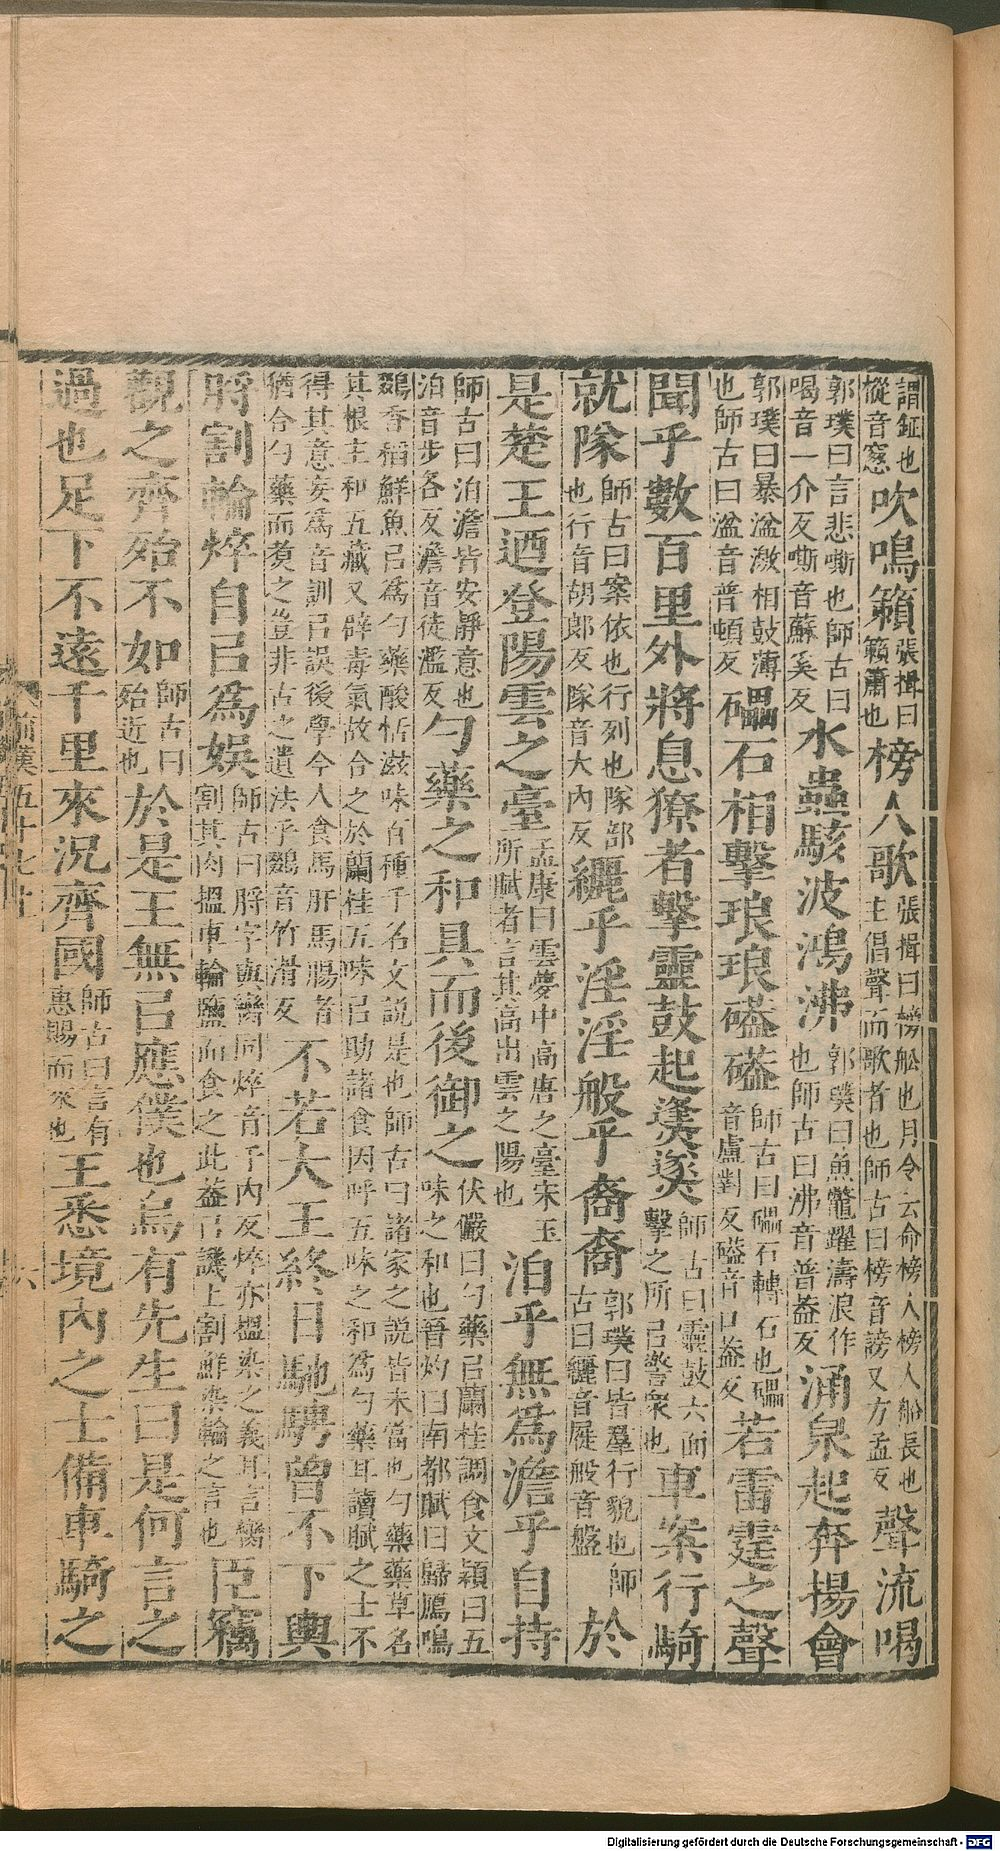 謂鉦也樅音窻吹鳴籟張揖曰籟蕭也榜人歌張揖曰榜舩也月令云命榜人榜人船長也主倡聲而歌者也師古曰榜音謗又方孟反聲流喝
郭璞曰言悲嘶也師古曰喝音一介反嘶音蘇奚反水蟲駭波鴻沸郭璞曰魚鼈躍濤浪作也師古曰沸音普蓋反涌泉起奔揚會
郭璞曰暴溢激相鼓薄也師古曰湓音普頓反礧石相擊琅琅磕磕師古曰礧石轉石也礧音盧對反磕音口蓋反若雷霆之聲
聞乎數百里外將息獠者擊靈鼓起㷭燧師古曰靈鼓六面擊之所㠯警衆也車案行騎
就隊師古曰案依也行列也隊部也行音胡郎反隊音大内反纚乎淫淫般乎裔裔郭璞曰皆羣行貌也師古曰纚音屣般音盤於
是楚王廼登陽雲之臺孟康曰雲夢中高唐之臺宋玉所賦者言其高出雲之陽也泊乎無爲澹乎自持
師古曰泊澹皆安靜意也泊音步各反澹音徒濫反勺藥之和具而後御之伏儼曰勺藥㠯蘭桂調食文穎曰五味之和也晉灼曰南都賦曰歸鴈鳴
鵽香稻鮮魚㠯爲勺藥酸恬滋味百種千名文説是也師古曰諸家之説皆未當也勺藥藥草名其根主和五藏又辟毒氣故合之於蘭桂五味㠯助諸食因呼五味之和爲勺藥耳讀賦之士不
得其意妄爲音訓㠯誤後學今人食馬肝馬腸者猶合勺藥而煑之豈非古之遺法乎鵽音竹滑反不若大王終日馳騁曾不下輿
脟割輪焠自㠯爲娛師古曰脟字與臠同焠音千内反焠亦搵染之義耳言臠割其肉搵車輪鹽而食之此蓋㠯譏上割鮮染輪之言也臣竊
觀之齊殆不如師古曰殆近也於是王無㠯應僕也烏有先生曰是何言之
過也足下不遠千里來況齊國師古曰言有惠賜而來也王悉境内之士備車騎之
Digitalisierung gefördert durch die Deutsche Forschungsgemeinschaft - DFG